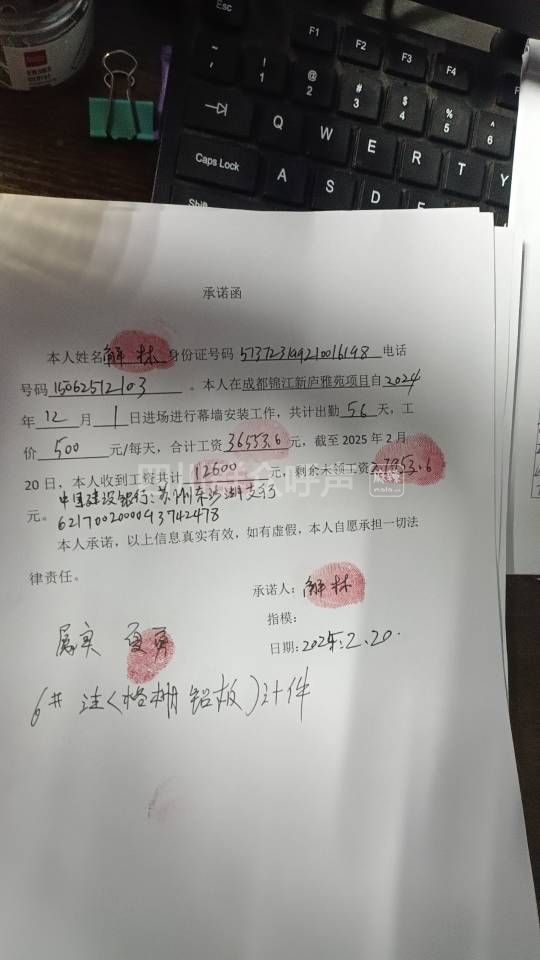 Esc
F1
F2
F3
F4
!
1
@
2
#
3
$
4
%
5
^
6
Q
W
E
R
T
Y
Caps Lock
A
S
D
Shift
承诺函
本人姓名解林身份证号码513723199210016198电话
号码15062512103。本人在成都锦江新庐雅苑项目自2024
年12月1日进场进行幕墙安装工作,共计出勤56天,工
价500元/每天,合计工资36553.6元,截至2025年2月
20日,本人收到工资共计12600元,剩余未领工资23953.6
元。中国建设银行:苏州东沙湖支行
6217002000093742478
本人承诺,以上信息真实有效,如有虚假,本人自愿承担一切法
律责任。
承诺人:解林
指模:
日期:2025.2.20.
属实
6# 注(格栅铝板)计件
四川群众呼声